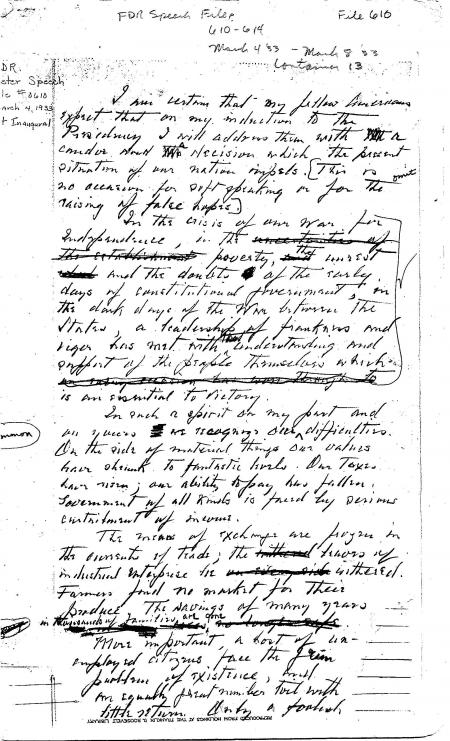 FDR Speech File, File 610
610-614
March 4 '33 - March 8 '33
Container 13
DR
ster Speech
le #0610
arch 4, 1933
t Inaugural
I am certain that my fellow Americans
expect that on my induction to the
Presidency I will address them with a
candor and decision which the present
situation of our nation impels. [This is omit
no occasion for soft speaking or for the
raising of false hopes]
In the crisis of our War for
Independence, in the uncertainties of
the establishment poverty, the unrest
and the doubts of the early
days of constitutional government, in
the dark days of the War between the
States, a leadership of frankness and
vigor has met with that understanding and
support of the people themselves which
is an essential to victory.
In such a spirit on my part and
on yours we recognize our difficulties.
mmon
On the side of material things our values
have shrunk to fantastic levels. Our taxes
have risen; our ability to pay has fallen.
Government of all kinds is faced by serious
curtailment of income.
The means of exchange are frozen in
the currents of trade; the leaves of
industrial enterprise lie on every side withered.
Farmers find no market for their
produce. The savings of many years
in thousands of families are gone
More important, a host of un-
employed citizens face the grim
problem of existence, and
an equally great number toil with
little return. Only a foolish
REPRODUCED FROM HOLDINGS AT THE FRANKLIN D. ROOSEVELT LIBRARY